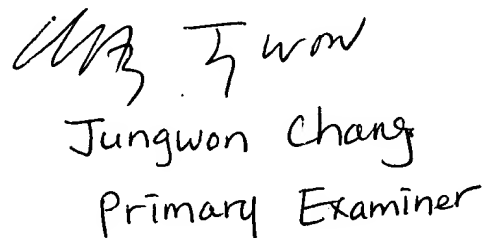 won
Jungwon Chang
Primary Examiner